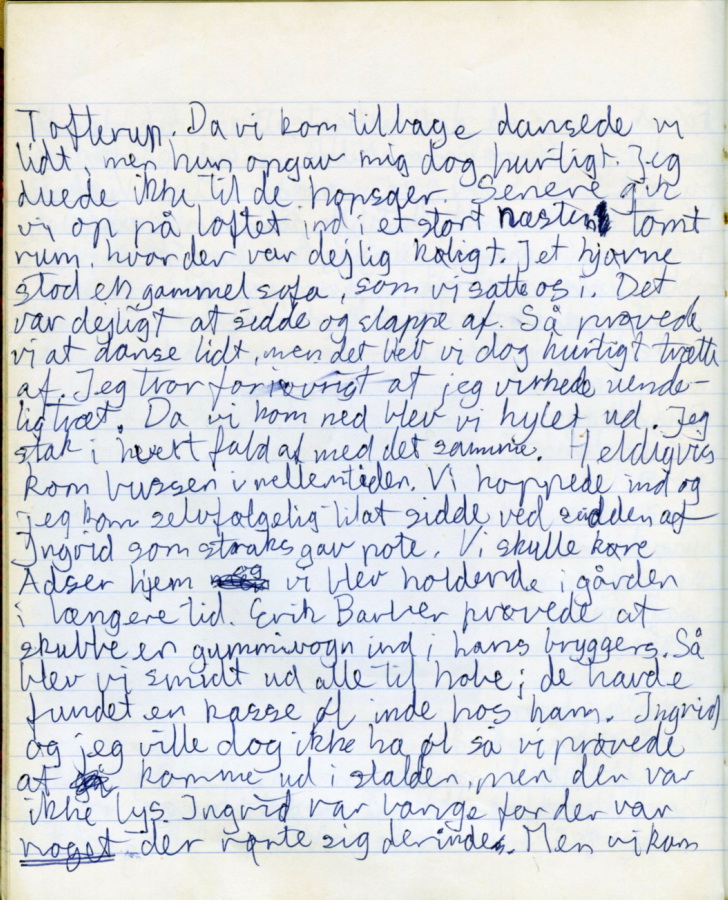 Tofterup. Da vi kom tilbage dansede vi
lidt, men hun opgav mig dog hurtigt. Jeg
duede ikke til de hopsaer. Senere gik
vi op på loftet ind i et stort næsten tomt
rum, hvor der var dejlig køligt. I et hjørne
stod en gammel sofa, som vi satte os i. Det
var dejligt at sidde og slappe af. Så prøvede
vi at danse lidt, men det blev vi dog hurtigt trætte
af. Jeg tror forøvrigt at jeg virkede uende-
lig træt. Da vi kom ned blev vi hylet ud. Jeg
stak i hvert fald af med det samme. Heldigvis
kom bussen i mellemtiden. Vi hoppede ind og
jeg kom selvfølgelig til at sidde ved siden af
Ingrid som straks gav pote. Vi skulle køre
Adser hjem og vi blev holdende i gården
i længere tid. Erik Barber prøvede at
skubbe en gummivogn ind i hans bryggers. Så
blev vi smidt ud alle til hobe; de havde
fundet en kasse øl inde hos ham. Ingrid
og jeg ville dog ikke ha øl så vi prøvede
at komme ud i stalden, men der var
ikke lys. Ingrid var bange for der var
noget der rørte sig derinde. Men vi kom